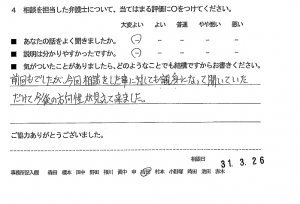 4 相談を担当した弁護士について、当てはまる評価に○をつけてください。
大変よい よい 普通 やや悪い 悪い
■ あなたの話をよく聞きましたか。
■ 説明は分かりやすかったですか。
■ 気がついたことがありましたら、どのようなことでも結構ですからお書きください。
前回もでしたが、今回相談をした事に対しても親身となって聞いていた
だけて今後の方向性が見えて来ました。
ご協力ありがとうございました。
相談日 31. 3. 26
事務所記入欄 森田 榎本 田中 野田 横川